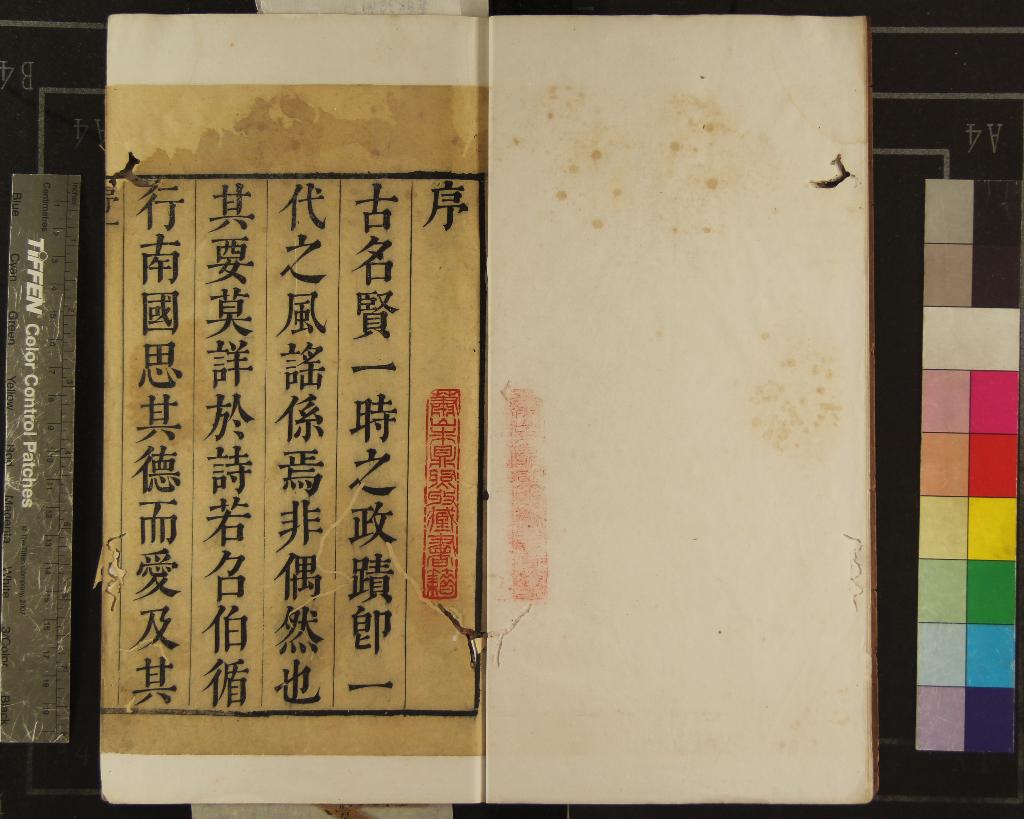 序
古名賢一時之政蹟卽一
代之風謠係焉非偶然也
其要莫詳於詩若召伯循
行南國思其德而愛及其
序
TIFFEN Color Control Patches
Inches
Centimetres
Blue
Cyan
Green
Yellow
Red
Magenta
White
3/Color
Black
B4
A4
A4